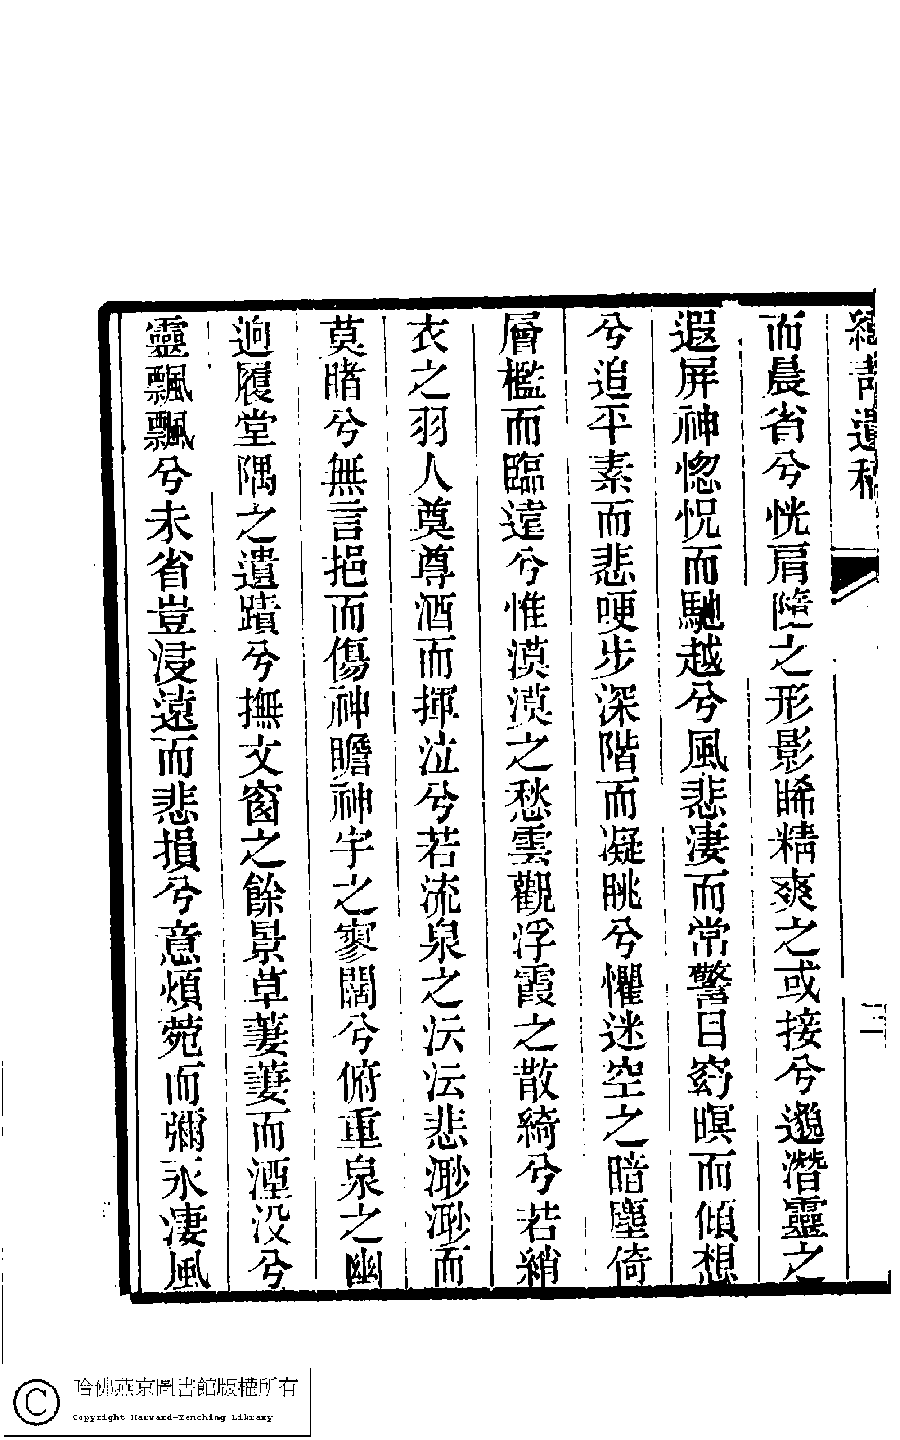 遺稿
二
而晨省兮恍肩隨之形影睎精爽之或接兮邈潛靈之
遐屏神惚怳而馳越兮風悲淒而常警日窈暝而傾想
兮追平素而悲哽步深階而凝眺兮懼迷空之暗塵倚
層檻而臨遠兮惟漠漠之愁雲觀浮霞之散綺兮若綃
衣之羽人奠尊酒而揮泣兮若流泉之沄沄悲渺渺而
莫睹兮無言挹而傷神瞻神宇之寥闊兮俯重泉之幽
迥履堂隅之遺蹟兮撫文窗之餘景草萋萋而湮没兮
靈飄飄兮未省豈浸遠而悲損兮意煩菀而彌永淒風
哈佛燕京圖書館版權所有
Copyright Harvard-Yenching Library